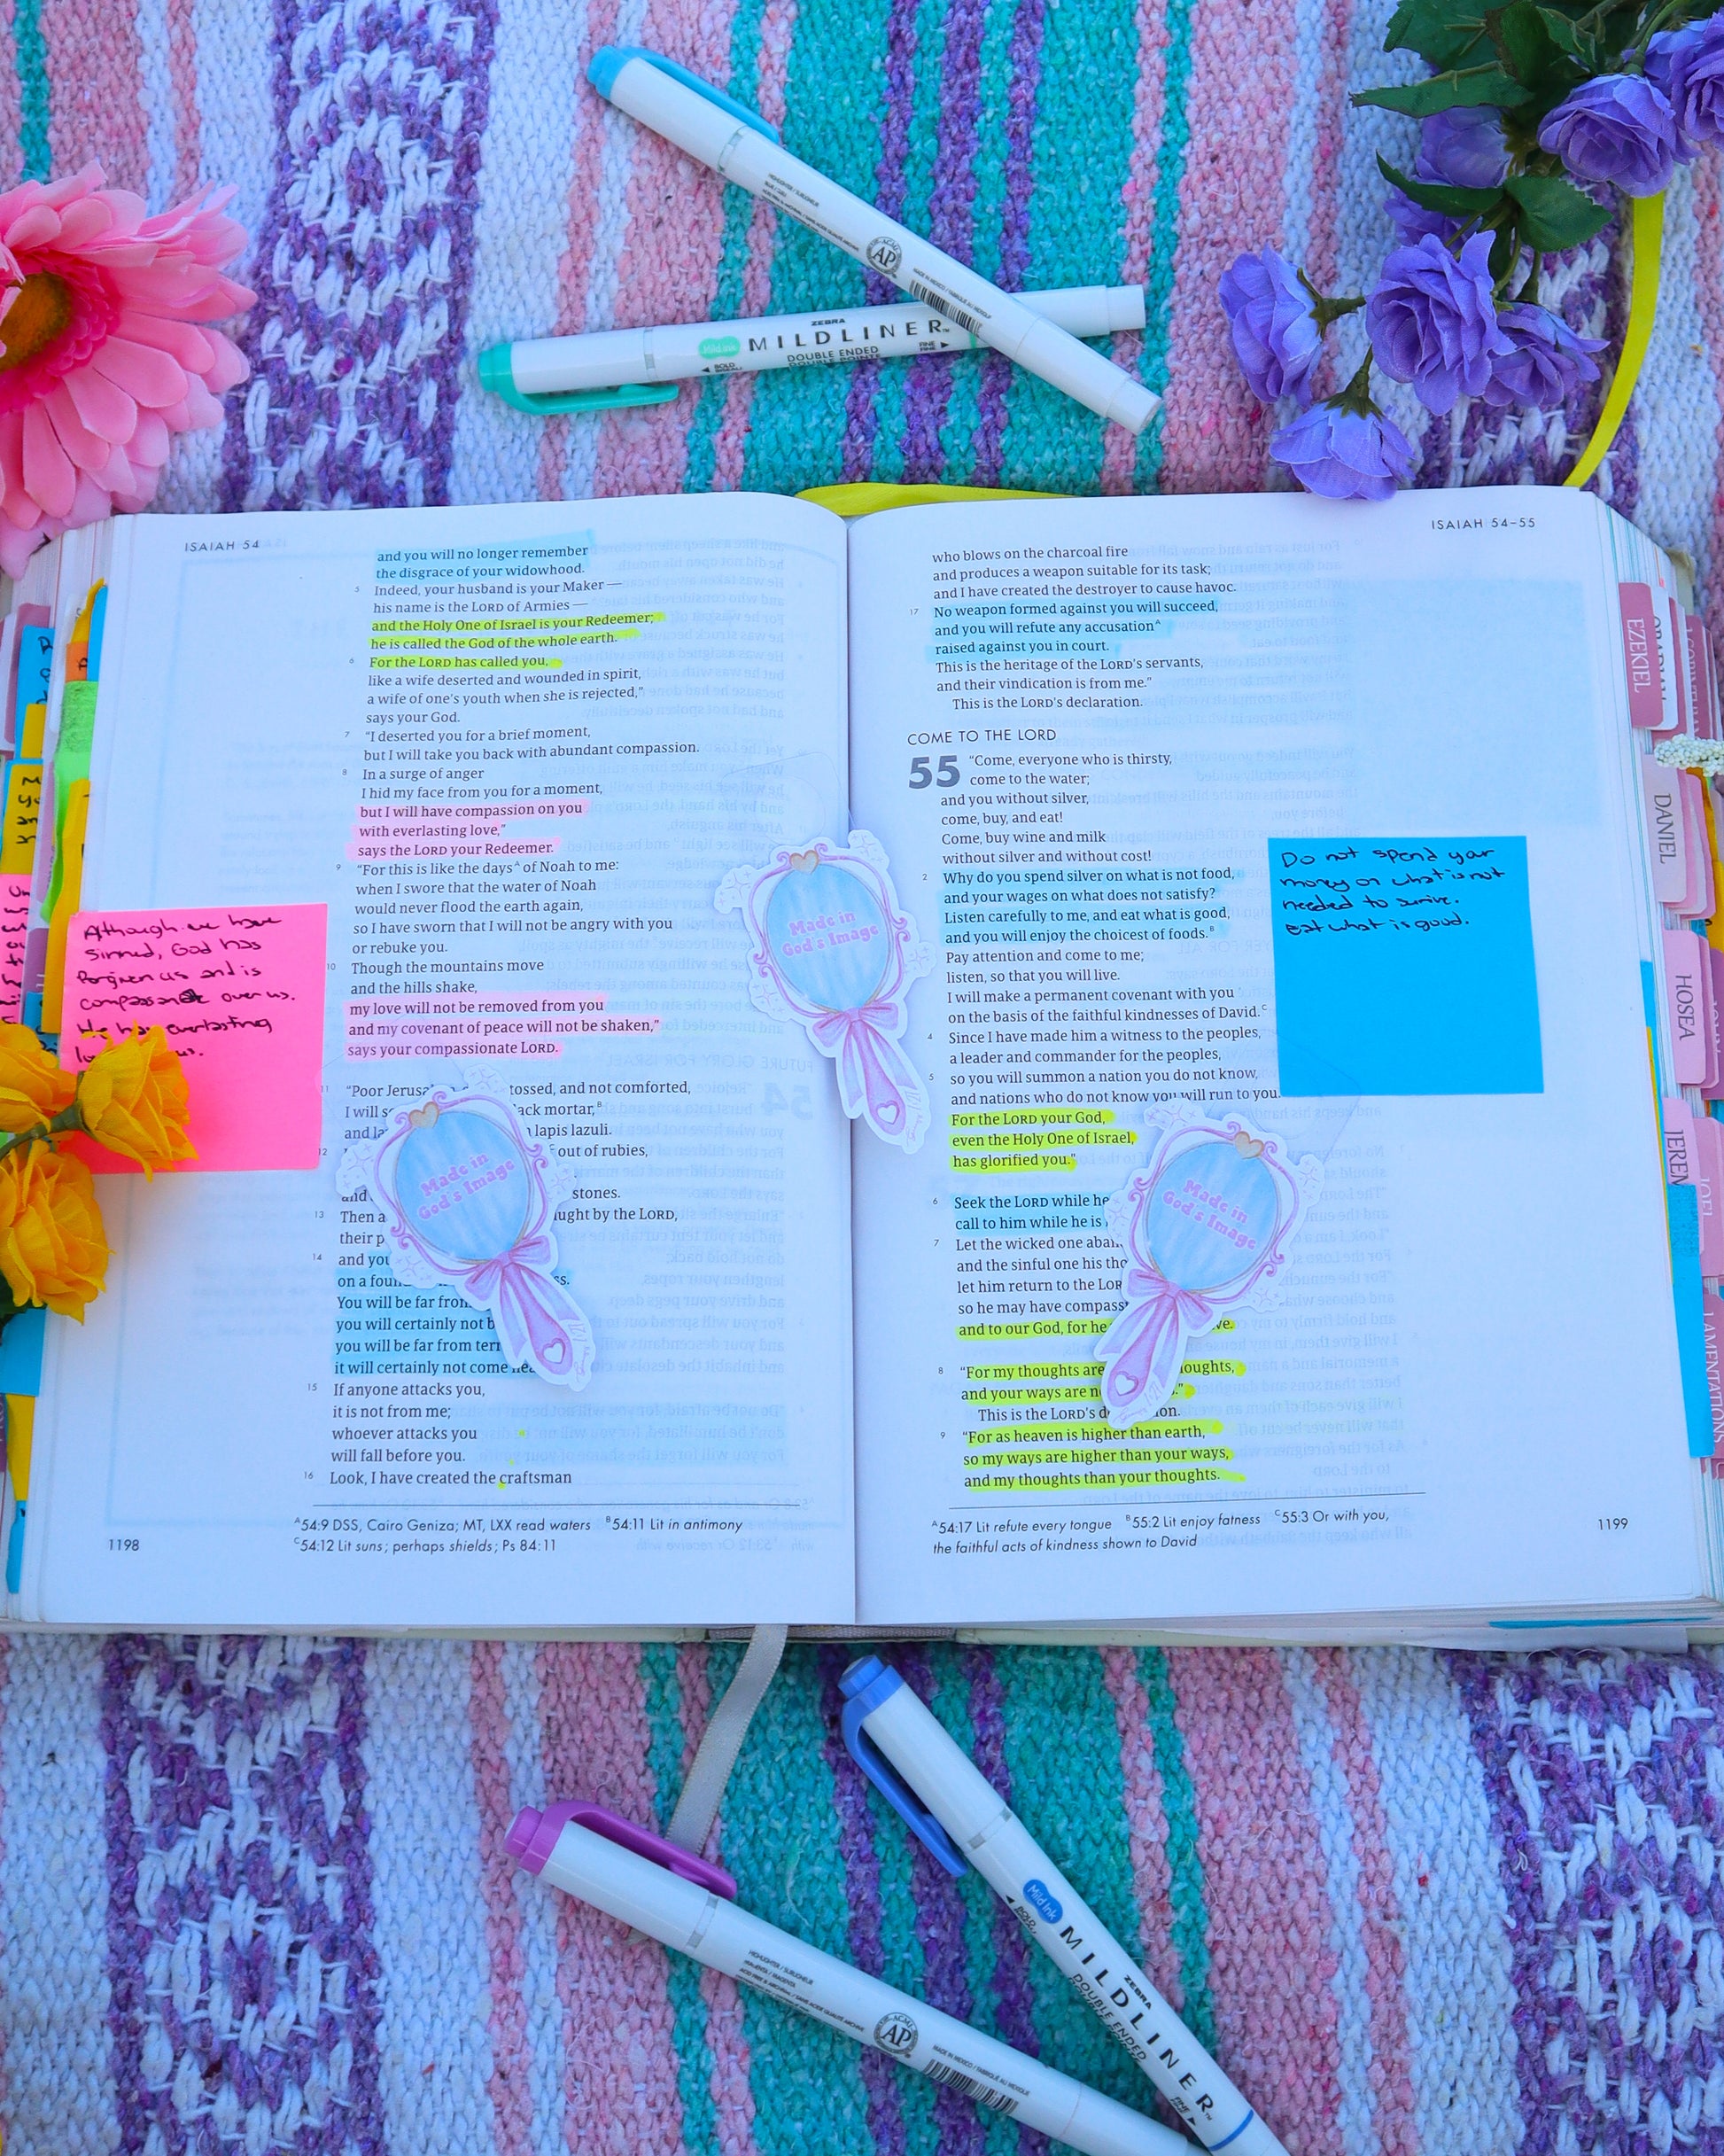 HIGHLIGHTER / SURLIGNEUR
AP
MADE IN MEXICO / FABRIQUÉ AU MEXIQUE
ZEBRA
Mild Ink
MILDLINER™
DOUBLE ENDED
DOUBLE POINTE
BOLD
FINE
ISAIAH 54
and you will no longer remember
the disgrace of your widowhood.
5 Indeed, your husband is your Maker —
his name is the LORD of Armies —
and the Holy One of Israel is your Redeemer;
he is called the God of the whole earth.
6 For the LORD has called you,
like a wife deserted and wounded in spirit,
a wife of one's youth when she is rejected,"
says your God.
7 "I deserted you for a brief moment,
but I will take you back with abundant compassion.
8 In a surge of anger
I hid my face from you for a moment,
but I will have compassion on you
with everlasting love,"
says the LORD your Redeemer.
9 "For this is like the days^A of Noah to me:
when I swore that the water of Noah
would never flood the earth again,
so I have sworn that I will not be angry with you
or rebuke you.
10 Though the mountains move
and the hills shake,
my love will not be removed from you
and my covenant of peace will not be shaken,"
says your compassionate LORD.
11 "Poor tossed, and not comforted,
I will mortar,^B
lapis lazuli.
12 out of rubies,
and stones.
13 Then by the LORD,
their
14 and
on a
You will be far
you will certainly not
you will be far from
it will certainly not come
15 If anyone attacks you,
it is not from me;
whoever attacks you
will fall before you.
16 Look, I have created the craftsman
A 54:9 DSS, Cairo Geniza; MT, LXX read waters B 54:11 Lit in antimony
C 54:12 Lit suns; perhaps shields; Ps 84:11
1198
Although we have
sinned, God has
forgiven us and is
over us.
He has everlasting
Made in
God's Image
Made in
God's Image
ISAIAH 54–55
who blows on the charcoal fire
and produces a weapon suitable for its task;
and I have created the destroyer to cause havoc.
17 No weapon formed against you will succeed,
and you will refute any accusation^A
raised against you in court.
This is the heritage of the LORD's servants,
and their vindication is from me."
This is the LORD's declaration.
COME TO THE LORD
55 "Come, everyone who is thirsty,
come to the water;
and you without silver,
come, buy, and eat!
Come, buy wine and milk
without silver and without cost!
2 Why do you spend silver on what is not food,
and your wages on what does not satisfy?
Listen carefully to me, and eat what is good,
and you will enjoy the choicest of foods.^B
Pay attention and come to me;
listen, so that you will live.
I will make a permanent covenant with you
on the basis of the faithful kindnesses of David.^C
4 Since I have made him a witness to the peoples,
a leader and commander for the peoples,
5 so you will summon a nation you do not know,
and nations who do not know you will run to you.
For the LORD your God,
even the Holy One of Israel,
has glorified you."
6 Seek the LORD while he
call to him while he is
7 Let the wicked one
and the sinful one his
let him return to the
so he may have
and to our God, for he
8 "For my thoughts are
and your ways are
This is the LORD's
9 "For as heaven is higher than earth,
so my ways are higher than your ways,
and my thoughts than your thoughts.
A 54:17 Lit refute every tongue B 55:2 Lit enjoy fatness C 55:3 Or with you,
the faithful acts of kindness shown to David
1199
Do not spend your
money on what is not
needed to survive.
eat what is good.
Made in
God's Image
EZEKIEL
DANIEL
HOSEA
JEREM
JOEL
LAMENTATIONS
HIGHLIGHTER / SURLIGNEUR
MAGENTA / MAGENTA
AP
MADE IN MEXICO / FABRIQUÉ AU MEXIQUE
Mild Ink
BOLD
ZEBRA
MILDLINER™
DOUBLE ENDED
DOUBLE POINTE
FINE